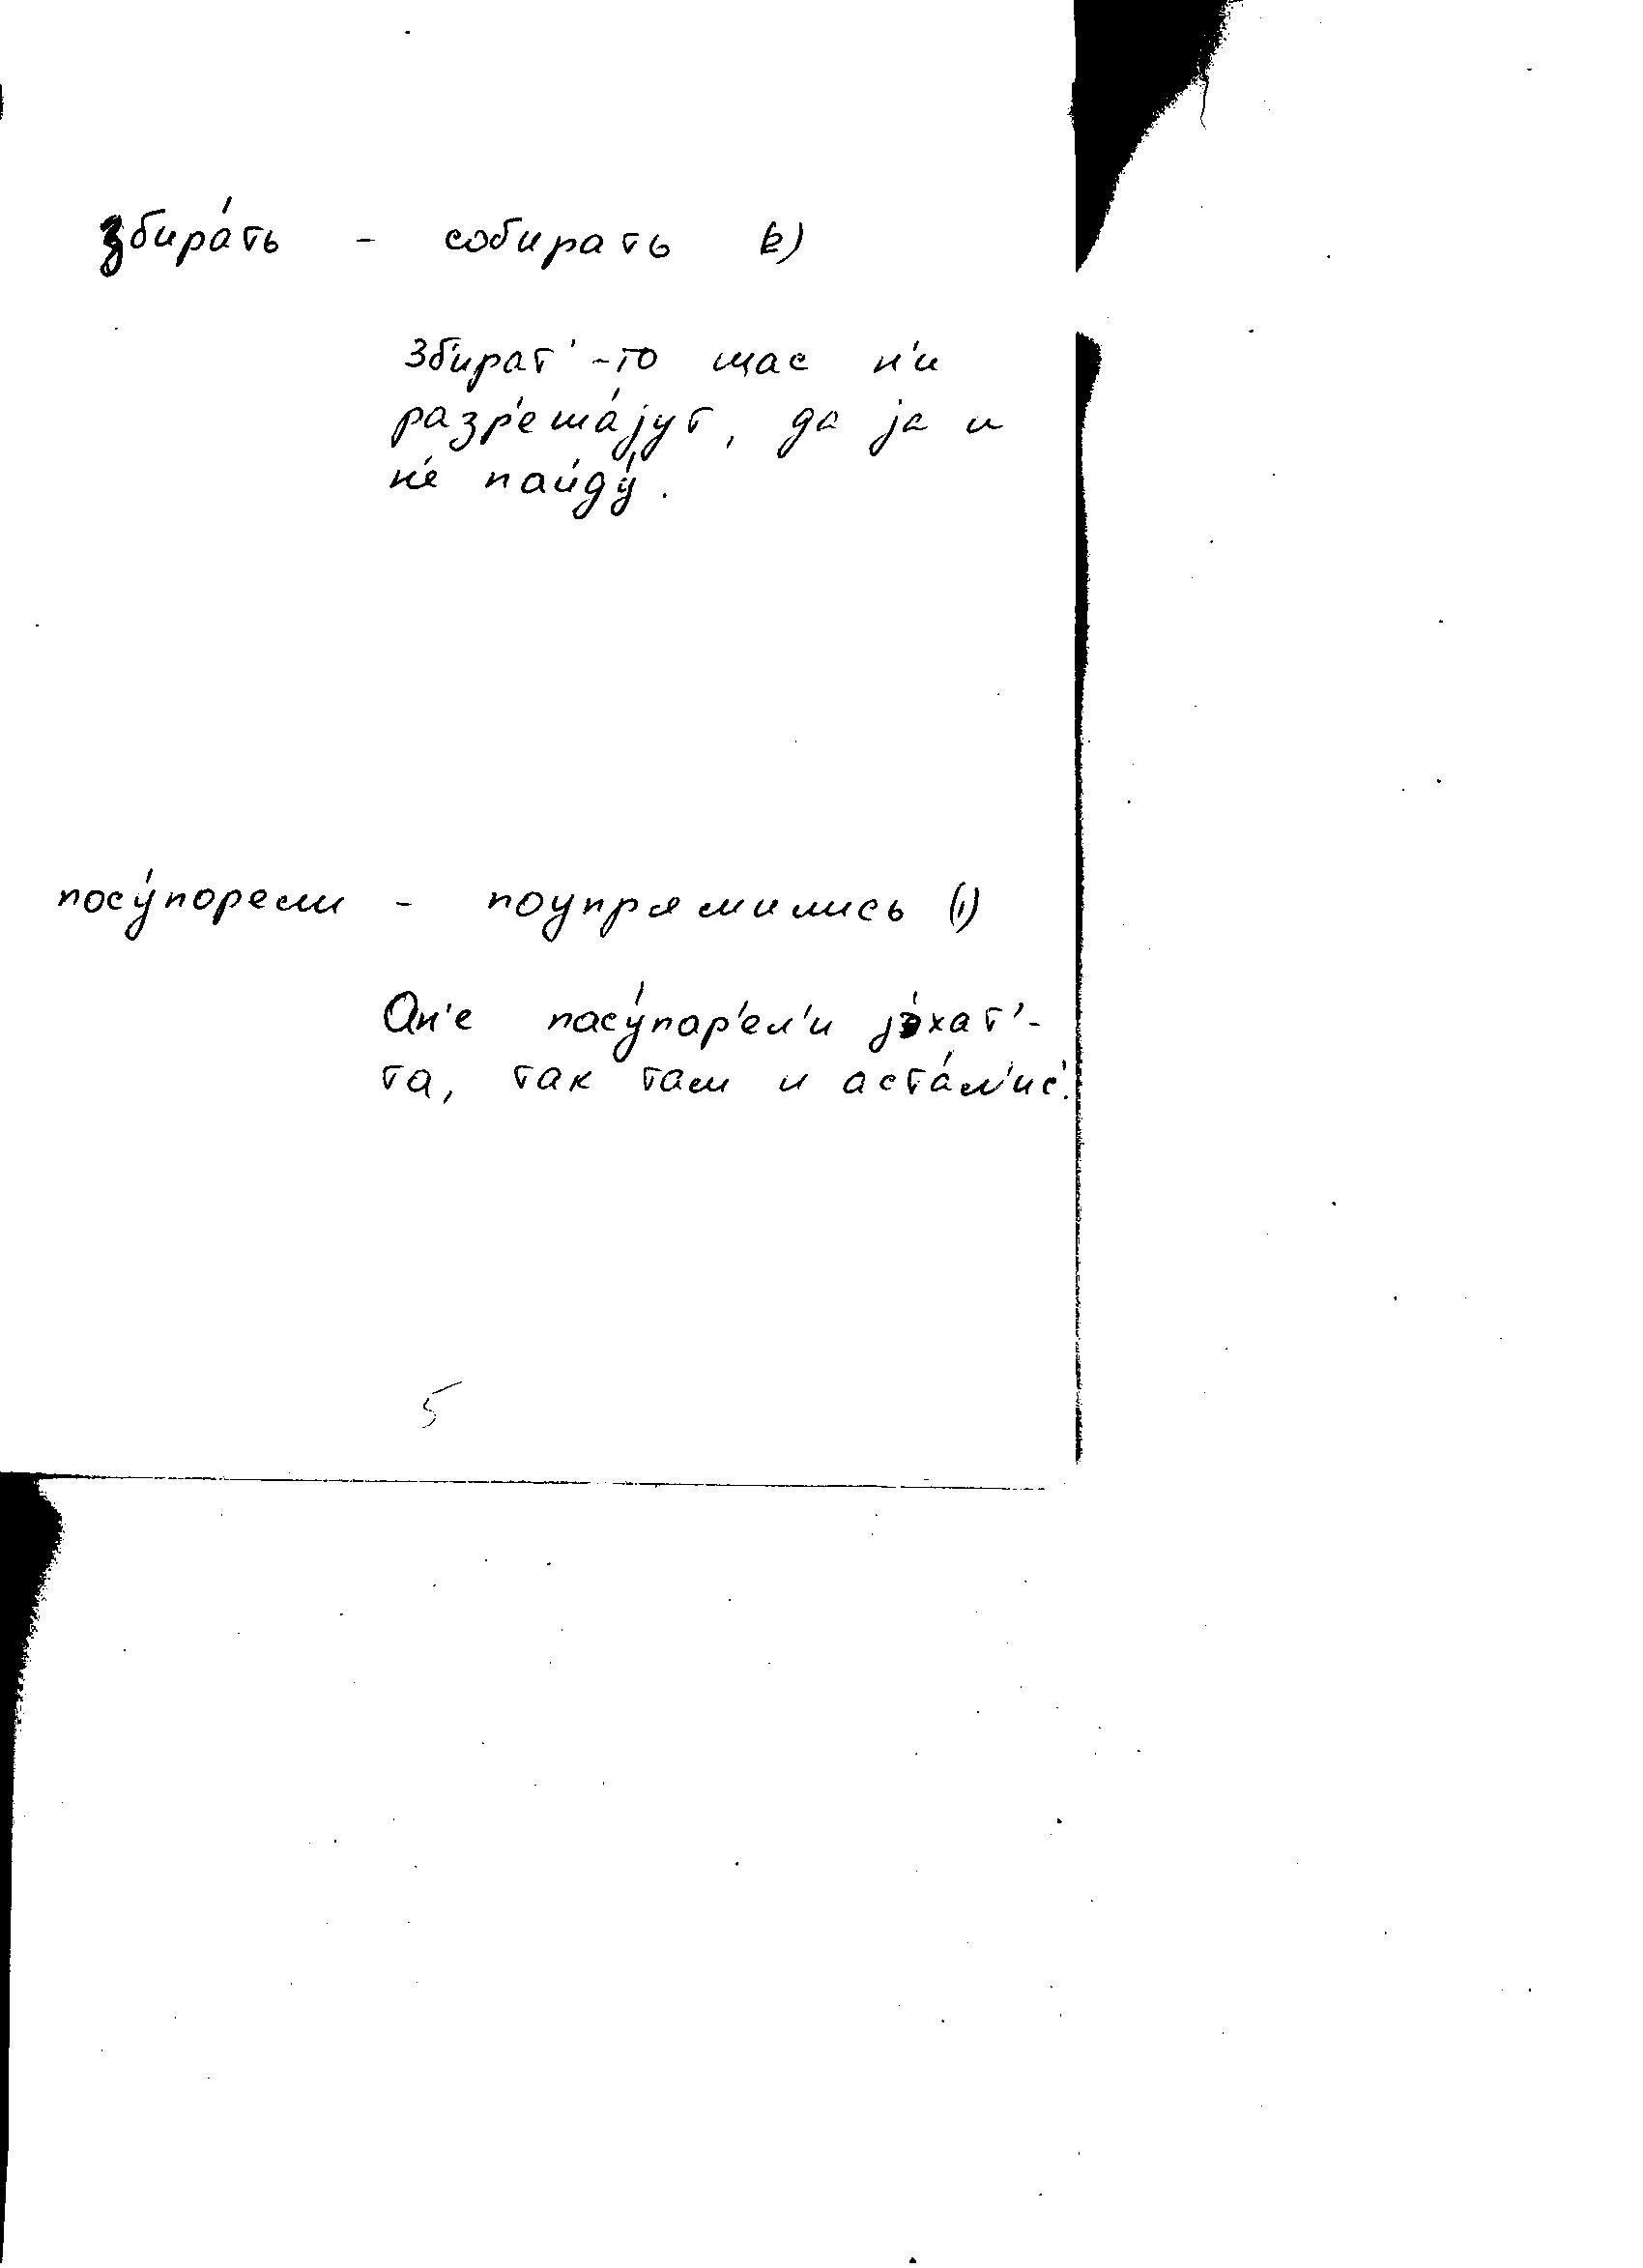 збира́ть - собирать (2)
Зб'ират'-то щас н'и
разр'еша́јут, да ја и
н'е пайду́.
посу́порели - поупрямились (1)
Ан'е пасу́пар'ел'и јэ́хат'-
та, так там и аста́л'ис'.
5